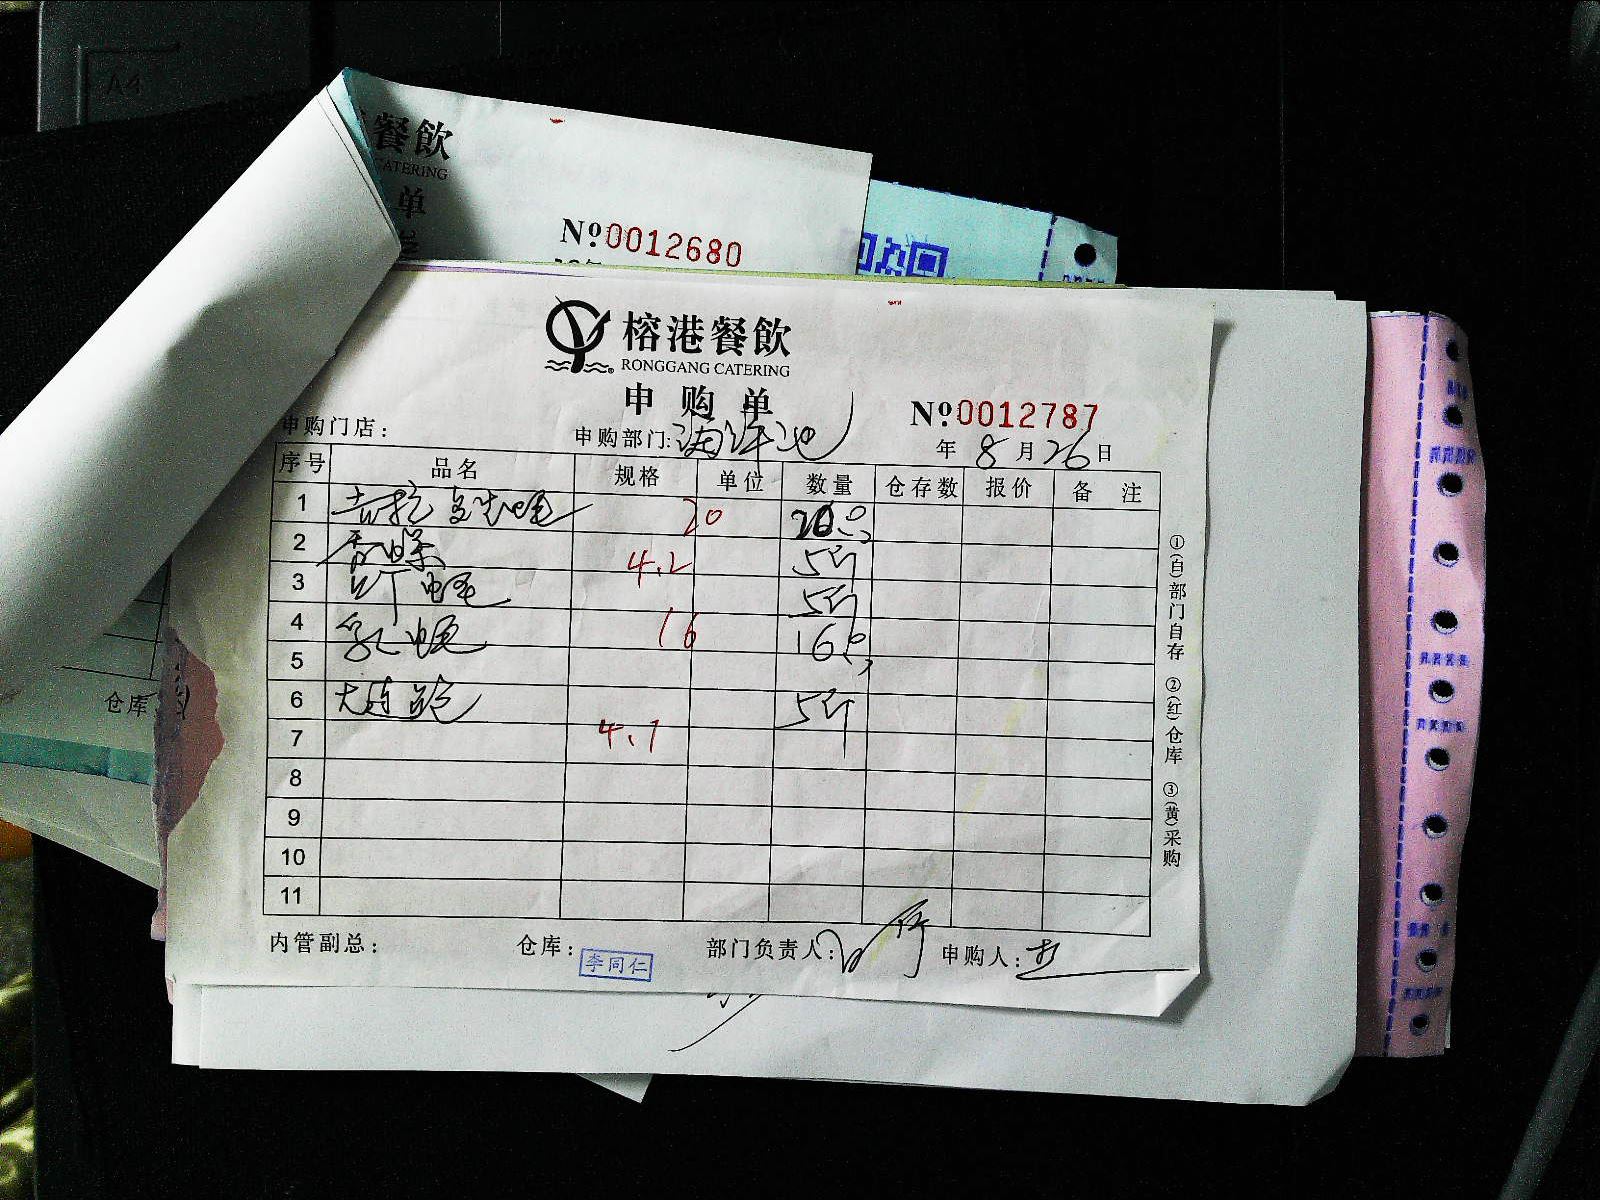 A4
餐飲
CATERING
单
№0012680
榕港餐飲
RONGGANG CATERING
申购单
№0012787
申购门店:
申购部门:海洋池
年 8 月 26 日
序号 品名 规格 单位 数量 仓存数 报价 备注
1 20 20
2 香螺 4.2 5斤
3 5斤
4 16 16
5
6 大连鲍 5斤
7 4.1
8
9
10
11
①(白)部门自存 ②(红)仓库 ③(黄)采购
仓库
内管副总: 仓库: 李同仁 部门负责人: 申购人: